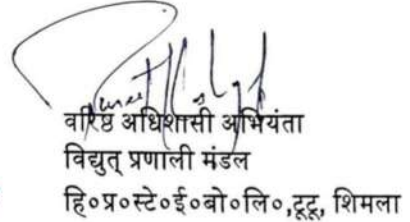 वरिष्ठ अधिशासी अभियंता
विद्युत् प्रणाली मंडल
हि०प्र०स्टे०ई०बो०लि०,टूटू, शिमला